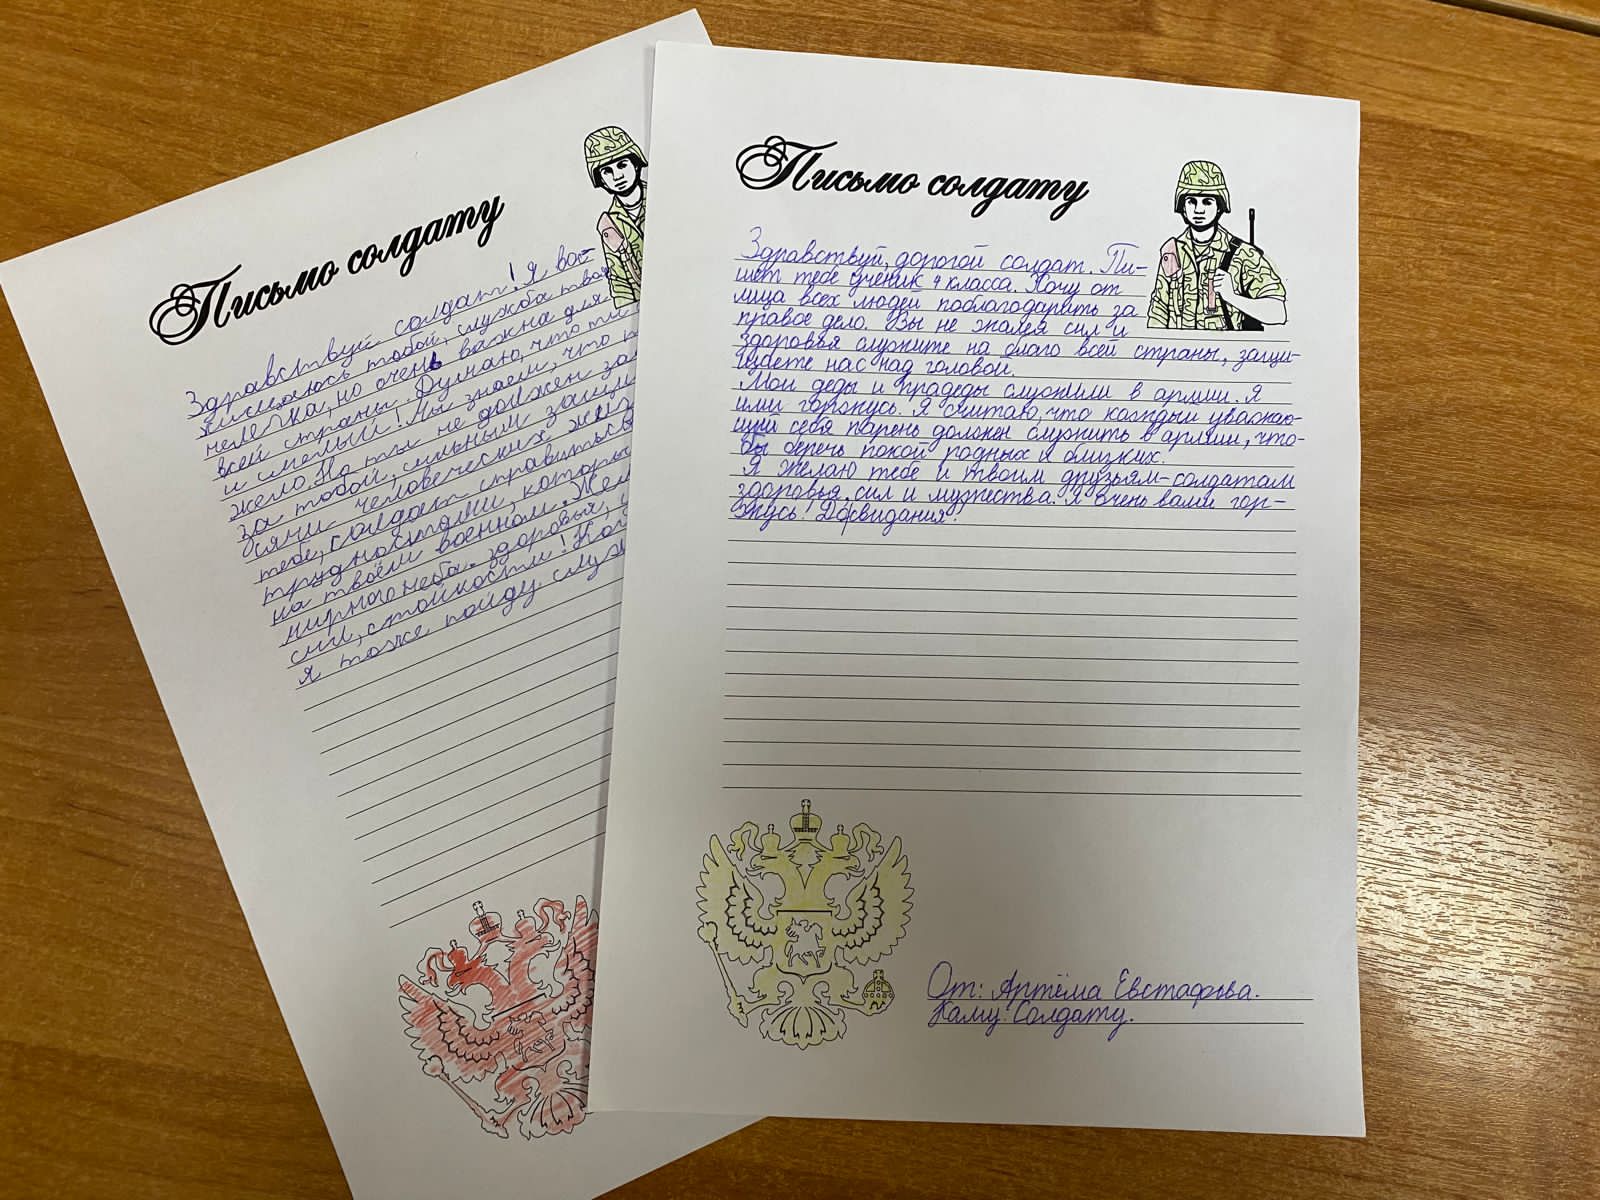 Письмо солдату
Здравствуй солдат! Я вос-
хищаюсь тобой, служба твоя
нелегка, но очень важна для
всей страны. Думаю, что ты
и смелый! Мы знаем, что
жело. Но ты не должен
за тобой, сильным
сячи человеческих
тебе, солдат справиться
трудностями,
на твоём военном
мирного неба, здоровья,
сил, стойкости!
я тоже пойду
Письмо солдату
Здравствуй, дорогой солдат. Пи-
шет тебе ученик 9 класса. Хочу от
лица всех людей поблагодарить за
правое дело. Вы не жалея сил и
здоровья служите на благо всей страны, защи-
щаете нас над головой.
Мои деды и прадеды служили в армии. Я
ими горжусь. Я считаю, что каждый уважаю-
щий себя парень должен служить в армии, что-
бы беречь покой родных и близких.
Я желаю тебе и твоим друзьям-солдатам
здоровья, сил и мужества. Я очень вами гор-
жусь! Досвидания!
От: Артёма Евстафьва.
Кому: Солдату.